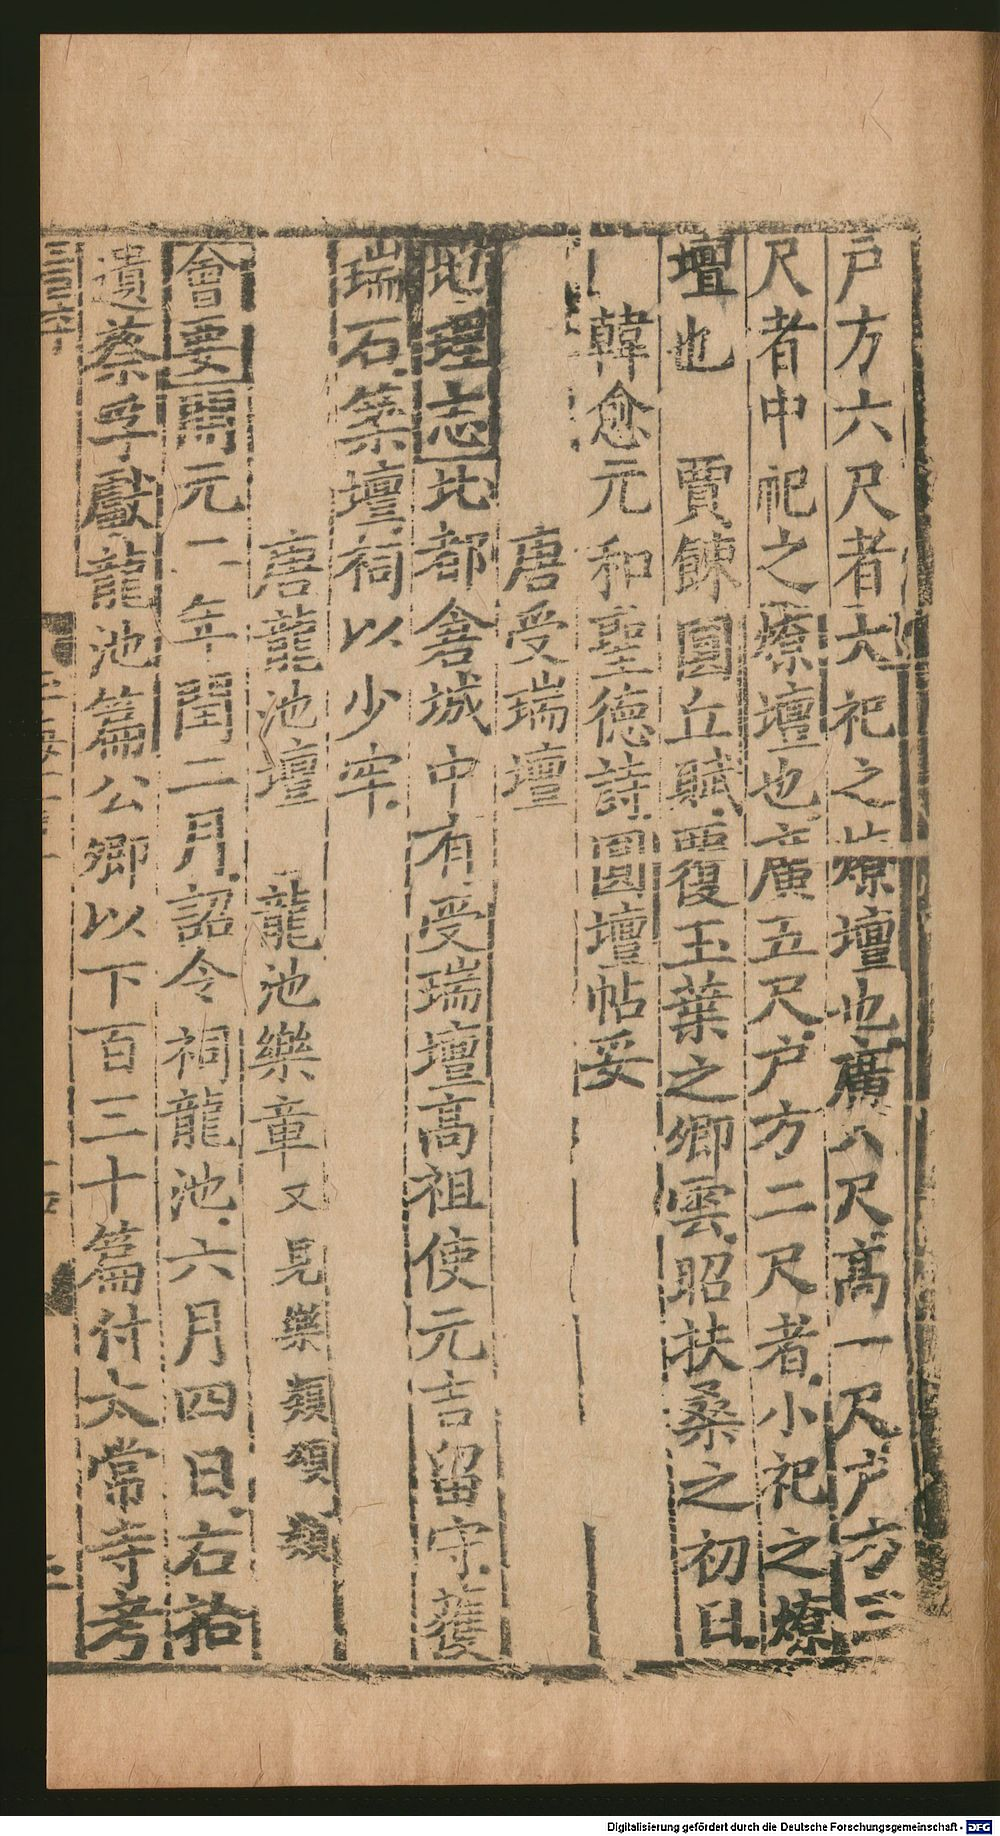 戶方六尺者大祀之燎壇也廣八尺高一尺戶方三
尺者中祀之燎壇也廣五尺戶方二尺者小祀之燎
壇也 賈餗圓丘賦覆玉葉之卿雲昭扶桑之初日
韓愈元和聖德詩圓壇帖妥
唐受瑞壇
地理志北都倉城中有受瑞壇高祖使元吉留守獲
瑞石築壇祠以少牢
唐龍池壇 龍池樂章又見樂類頌類
會要開元二年閏二月詔令祠龍池六月四日右拾
遺蔡孚獻龍池篇公卿以下百三十篇付太常寺考
Digitalisierung gefördert durch die Deutsche Forschungsgemeinschaft - DFG